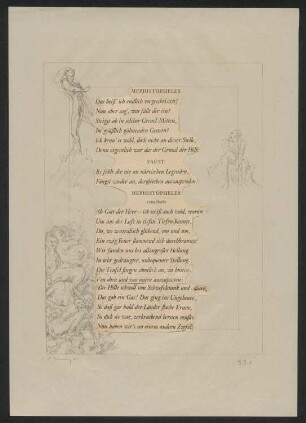 MEPHISTOPHELES
Das heiß' ich endlich vorgeschritten!
Nun aber sag', was fällt dir ein?
Steigst ab in solcher Greuel Mitten,
Im gräßlich gähnenden Gestein?
Ich kenn' es wohl, doch nicht an dieser Stelle,
Denn eigentlich war das der Grund der Hölle.
FAUST
Es fehlt dir nie an närrischen Legenden;
Fängst wieder an, dergleichen auszuspenden.
MEPHISTOPHELES
ernsthaft
Als Gott der Herr – ich weiß auch wohl, warum –
Uns aus der Luft in tiefste Tiefen bannte,
Da, wo zentralisch glühend, um und um,
Ein ewig Feuer flammend sich durchbrannte:
Wir fanden uns bei allzugroßer Hellung
In sehr gedrängter, unbequemer Stellung.
Die Teufel fingen sämtlich an, zu husten,
Von oben und von unten auszupusten;
Die Hölle schwoll von Schwefelstank und -säure,
Das gab ein Gas! Das ging ins Ungeheure,
So daß gar bald der Länder flache Kruste,
So dick sie war, zerkrachend bersten mußte.
Nun haben wir's an einem andern Zipfel: